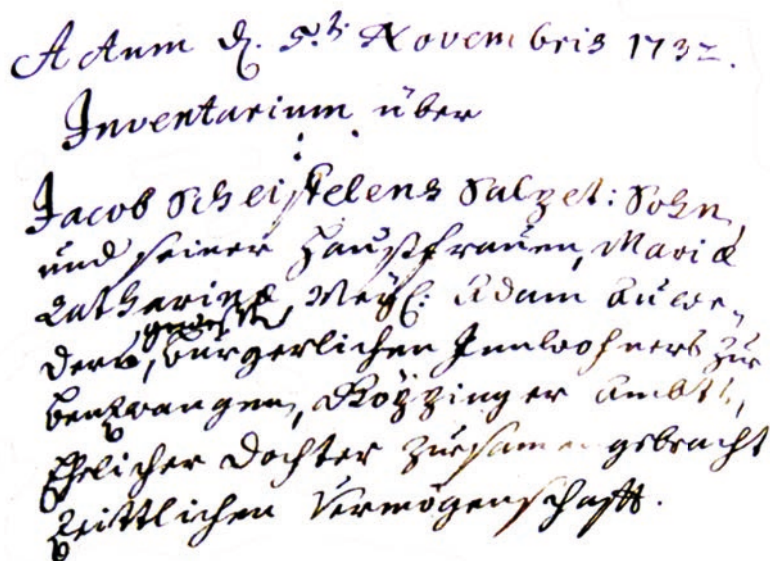 Actum d. 5.t. Novembris 1732.
Inventarium über
Jacob Scheiffelens Balzet: Sohn,
und seiner Haußfrauen, Mariæ
Catharinæ, Weyl: Adam
gewesten
bürgerlichen Innwohners zu
Ambts,
Ehelicher Dochter zusamen gebracht
Zeittlichen Vermögenschafft.